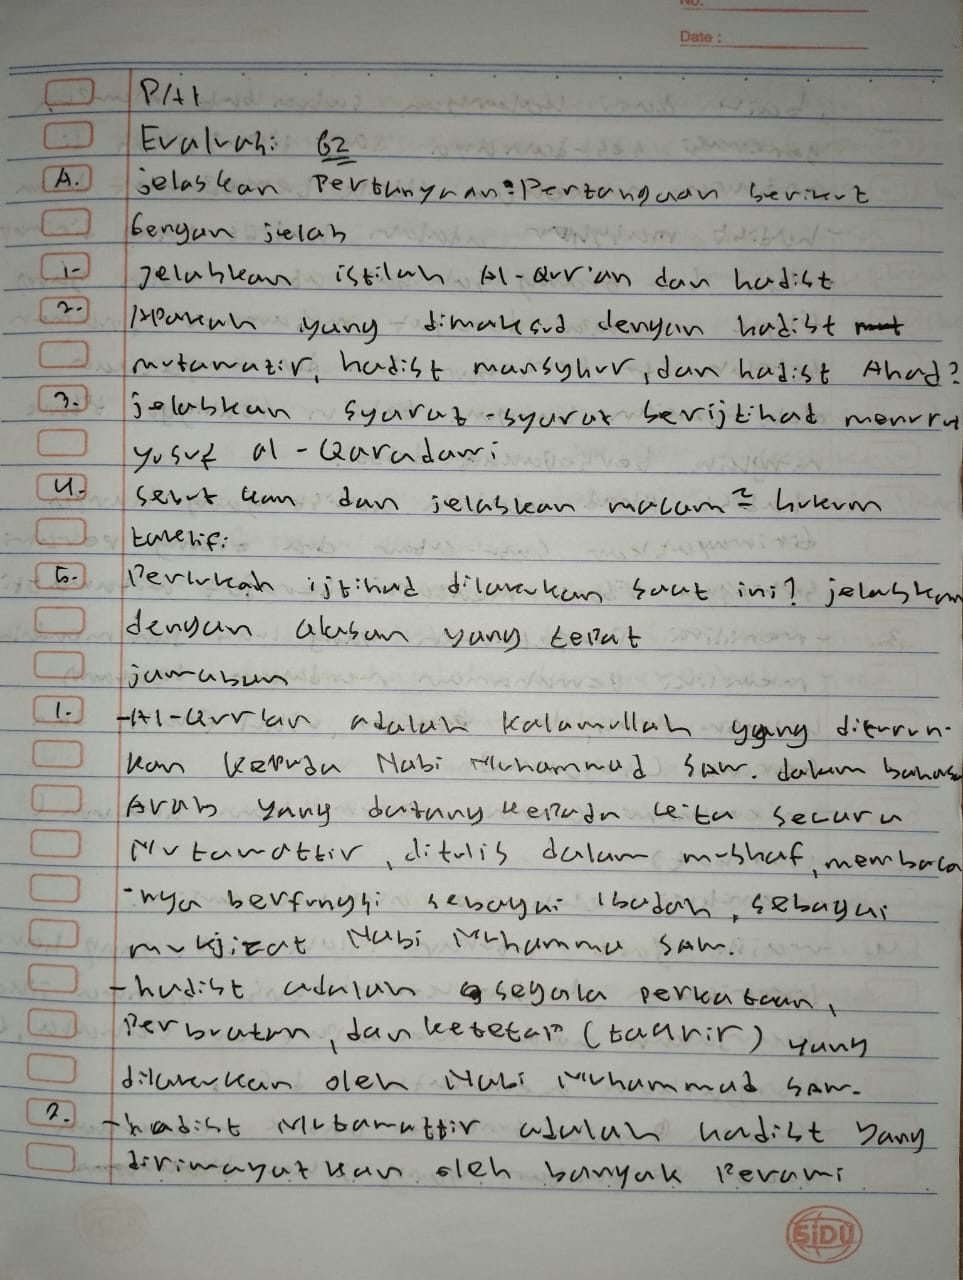 No.
Date :
PAI
Evaluasi 62
A. jelaskan Pertanyaan-Pertanyaan berikut
dengan jelas
1. jelaskan istilah Al-Qur'an dan hadist
2. Apakah yang dimaksud dengan hadist
mutawazir, hadist mansyhur, dan hadist Ahad?
3. jelaskan syarat-syarat berijtihad menuru
yusuf al-Qaradawi
4. sebut kan dan jelaskan macam2 hukum
taklifi
5. Perlukah ijtihad dilakukan saat ini? jelaskan
dengan alasan yang tepat
jawaban
1. -Al-Qur'an adalah kalamullah yang diturun-
kan kepada Nabi Muhammad SAW. dalam bahasa
Arab yang datang kepada kita secara
Mutawattir, ditulis dalam mushaf, membaca
-nya berfungsi sebagai Ibadah, sebagai
mukjizat Nabi Muhamma SAW.
-hadist adalah segala perkataan,
Perbuatan, dan ketetap (taqrir) yang
dilakukan oleh Nabi Muhammad SAW.
2. -hadist Mutawattir adalah hadist yang
dirimayatkan oleh banyak Perawi
SiDU